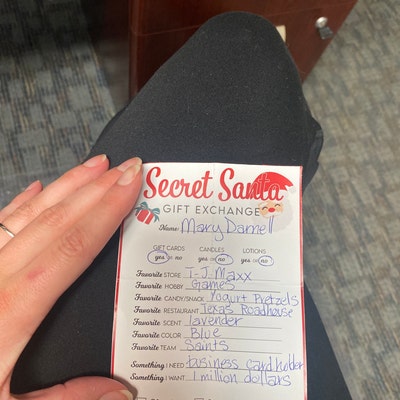 Secret Santa
GIFT EXCHANGE
Name: Mary Darnell
GIFT CARDS CANDLES LOTIONS
yes or no yes or no yes or no
Favorite STORE T-J Maxx
Favorite HOBBY Games
Favorite CANDY/SNACK Yogurt Pretzels
Favorite RESTAURANT Texas Roadhouse
Favorite SCENT lavender
Favorite COLOR Blue
Favorite TEAM Saints
Something I NEED business card holder
Something I WANT 1 million dollars